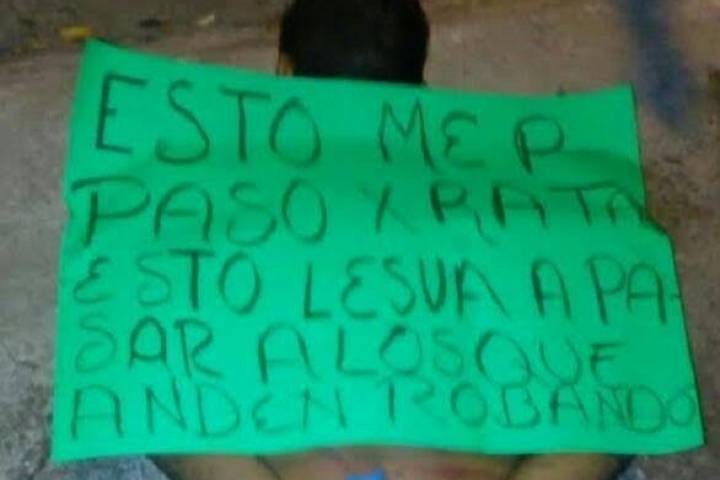 ESTO ME P
PASO X RATA
ESTO LESVA A PA-
SAR A LOS QUE
ANDEN ROBANDO